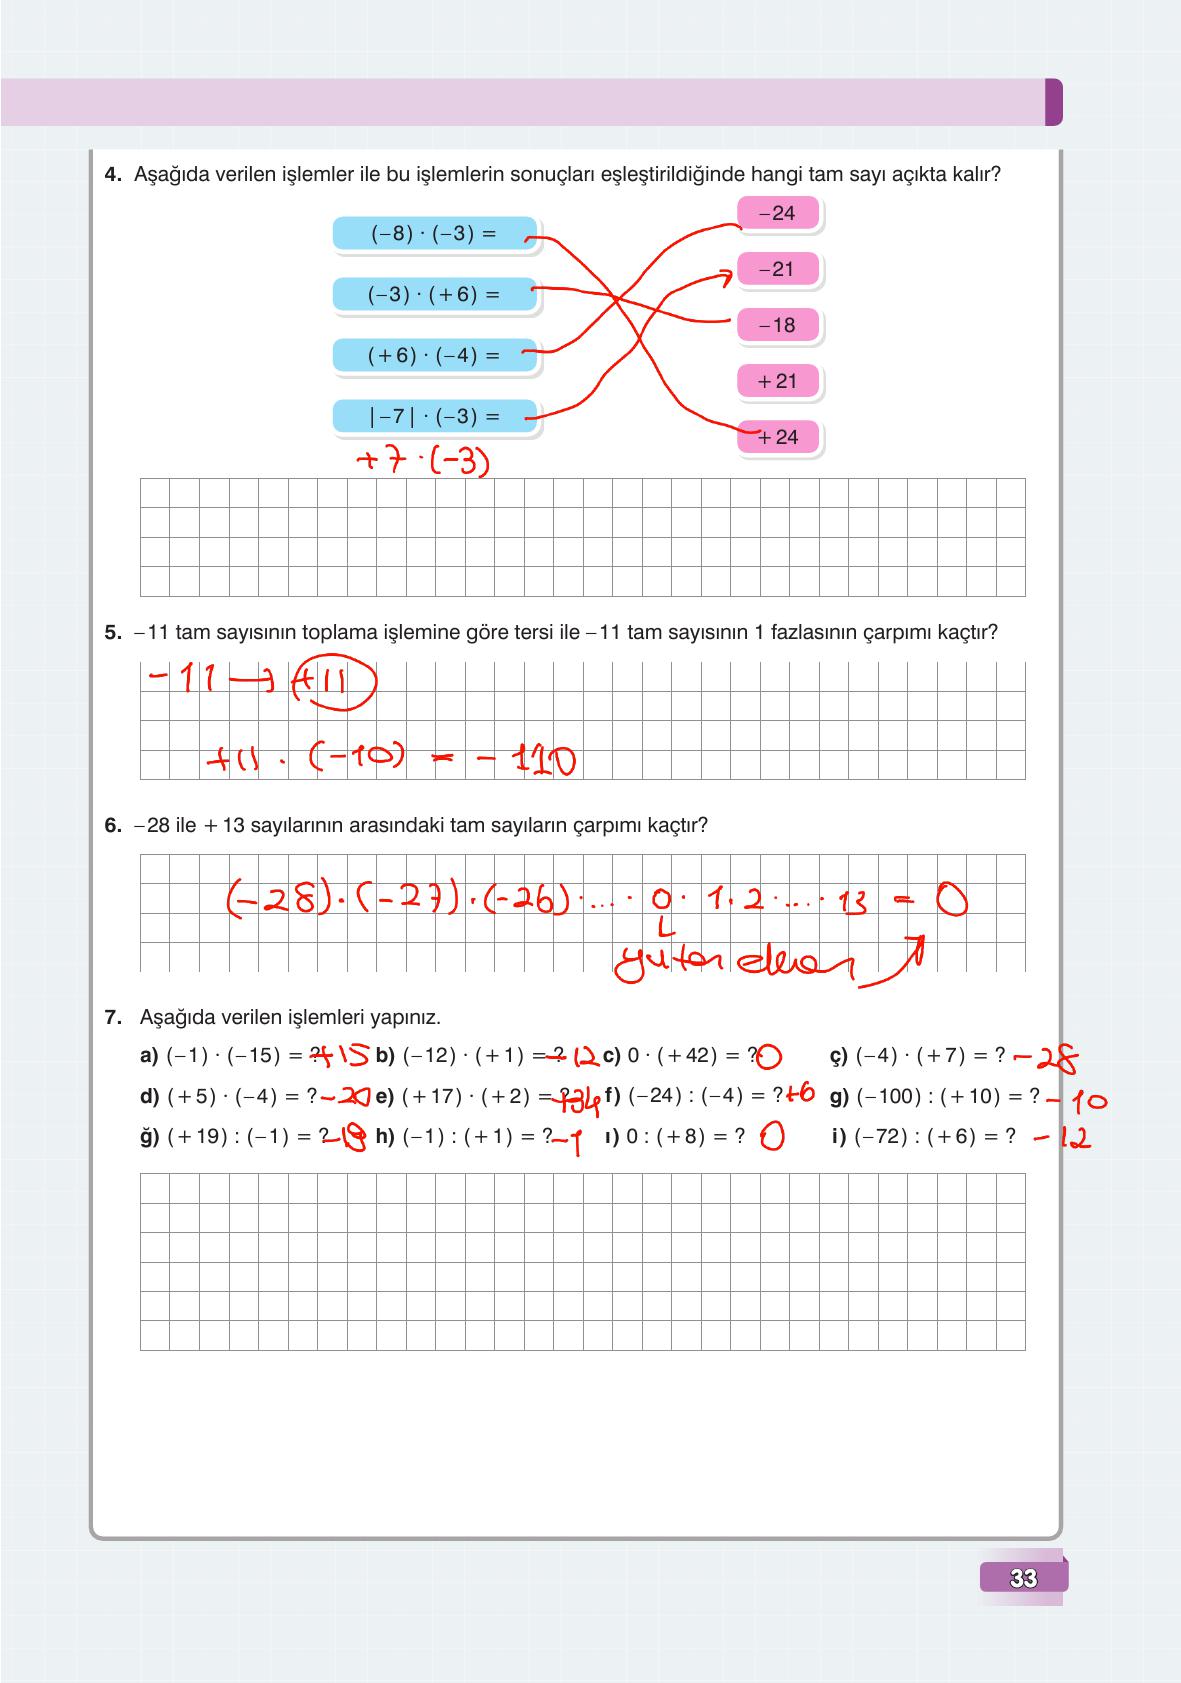 4. Aşağıda verilen işlemler ile bu işlemlerin sonuçları eşleştirildiğinde hangi tam sayı açıkta kalır?
(−8) · (−3) =
(−3) · (+6) =
(+6) · (−4) =
|−7| · (−3) =
+7 · (−3)
−24
−21
−18
+21
+24
5. −11 tam sayısının toplama işlemine göre tersi ile −11 tam sayısının 1 fazlasının çarpımı kaçtır?
−11 → +11
+11 · (−10) = −110
6. −28 ile +13 sayılarının arasındaki tam sayıların çarpımı kaçtır?
(−28)·(−27)·(−26)·...· 0 · 1·2·...· 13 = 0
yutan eleman
7. Aşağıda verilen işlemleri yapınız.
a) (−1) · (−15) = ? +15 b) (−12) · (+1) = ? −12 c) 0 · (+42) = ? 0 ç) (−4) · (+7) = ? −28
d) (+5) · (−4) = ? −20 e) (+17) · (+2) = ? +34 f) (−24) : (−4) = ? +6 g) (−100) : (+10) = ? −10
ğ) (+19) : (−1) = ? −19 h) (−1) : (+1) = ? −1 ı) 0 : (+8) = ? 0 i) (−72) : (+6) = ? −12
33